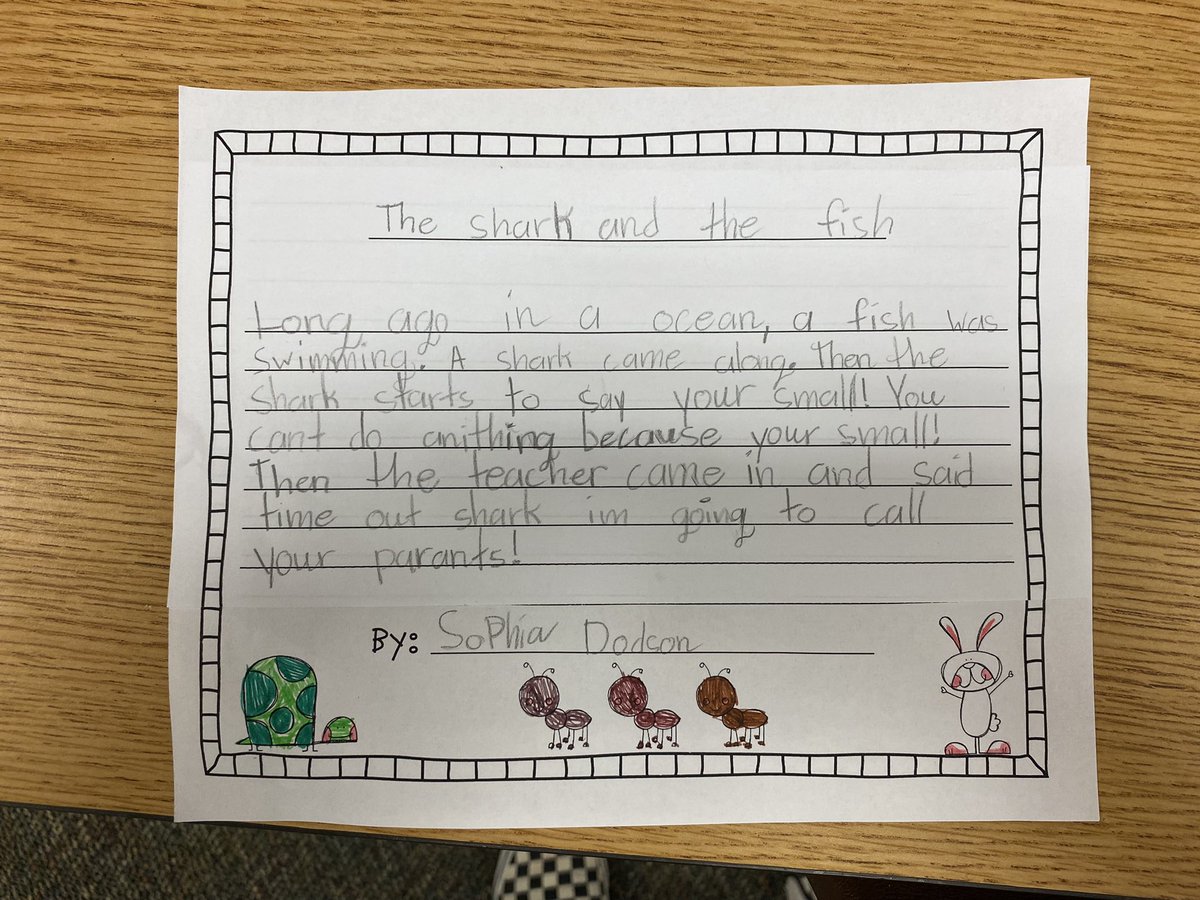 The shark and the fish
Long ago in a ocean, a fish was
swimming. A shark came along. Then the
shark starts to say your small! You
cant do anithing because your small!
Then the teacher came in and said
time out shark im going to call
your parants!
By: Sophia Dodson